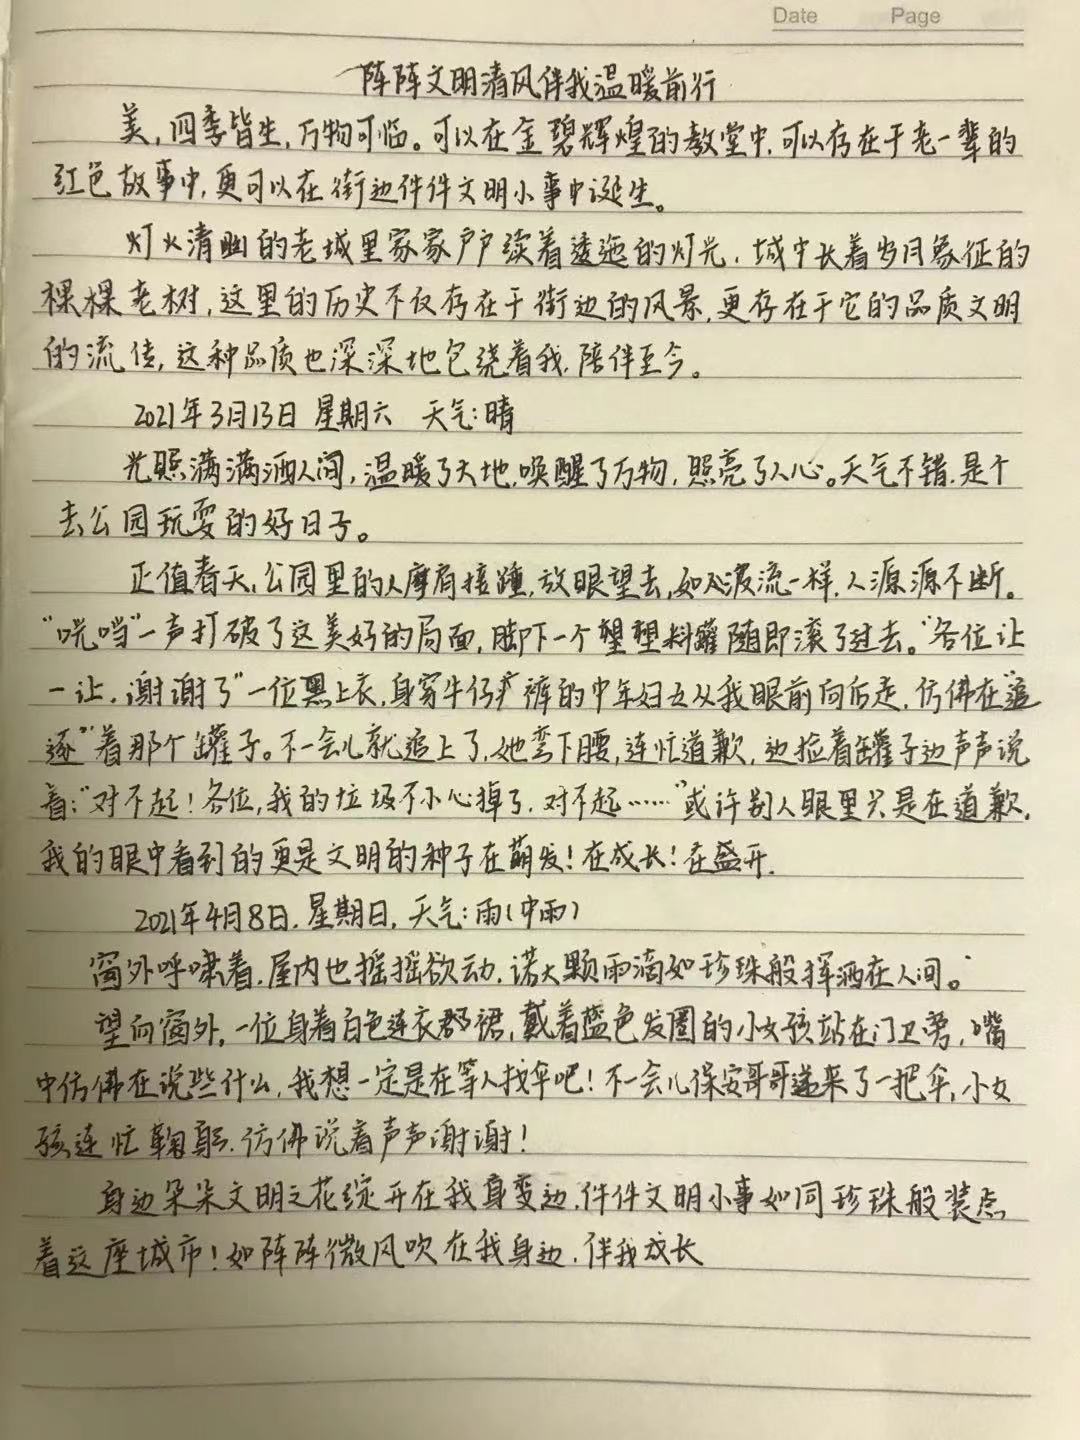 Date Page
阵阵文明清风伴我温暖前行
美,四季皆生,万物可临。可以在金碧辉煌的教堂中,可以存在于老一辈的
红色故事中,更可以在街边件件文明小事中诞生。
灯火清幽的老城里家家户户续着透迤的灯光,城中长着岁月象征的
棵棵老树,这里的历史不仅存在于街边的风景,更存在于它的品质文明
的流传,这种品质也深深地包绕着我,陪伴至今。
2021年3月13日 星期六 天气:晴
光照满满洒人间,温暖了大地,唤醒了万物,照亮了人心。天气不错,是个
去公园玩耍的好日子。
正值春天,公园里的人摩肩接踵,放眼望去,如波流一样,人源源不断。
“咣当”一声打破了这美好的局面,脚下一个塑塑料罐随即滚了过去。“各位让
一让,谢谢了”一位黑上衣,身穿牛仔裤的中年妇女从我眼前向后走,仿佛在“追
逐”着那个罐子。不一会儿就追上了,她弯下腰,连忙道歉,边捡着罐子边声声说
着:“对不起!各位,我的垃圾不小心掉了,对不起……”或许别人眼里只是在道歉,
我的眼中看到的更是文明的种子在萌发!在成长!在盛开.
2021年4月8日,星期日,天气:雨(中雨)
窗外呼啸着,屋内也摇摇欲动,诺大颗雨滴如珍珠般挥洒在人间。
望向窗外,一位身着白色连衣裙,戴着蓝色发圈的小女孩站在门卫旁,嘴
中仿佛在说些什么,我想一定是在等人找伞吧!不一会儿保安哥哥递来了一把伞,小女
孩连忙鞠躬,仿佛说着声声谢谢!
身边朵朵文明之花绽开在我身边,件件文明小事如同珍珠般装点
着这座城市!如阵阵微风吹在我身边,伴我成长